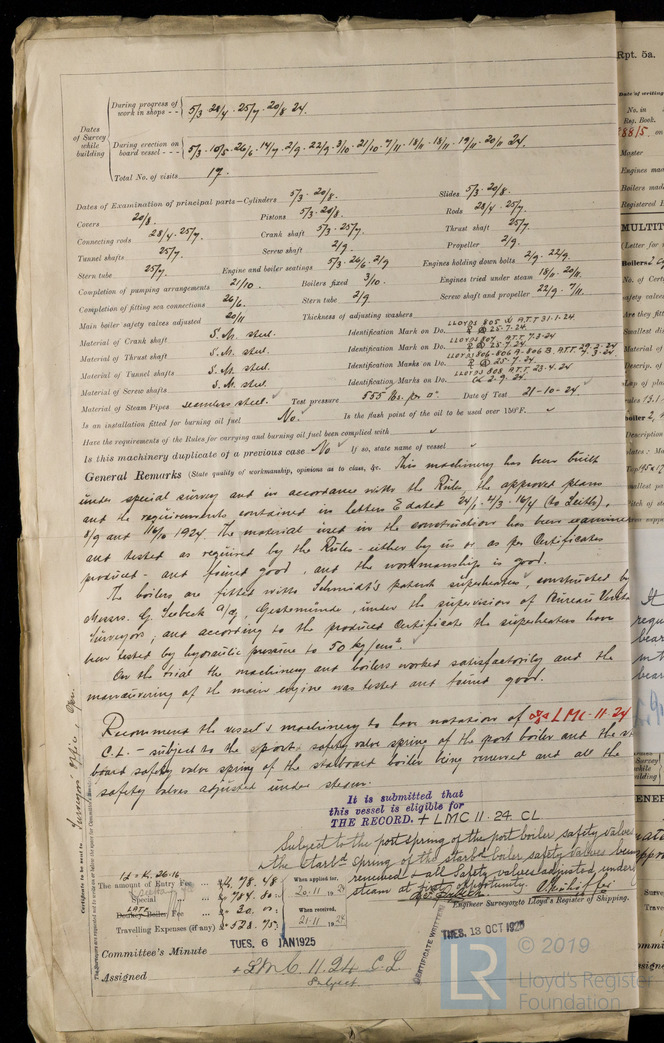 During progress of work in shops - - 5/3 · 28/4 · 25/7 · 20/8 24.
Dates of Survey while building
During erection on board vessel - - - 5/3 · 10/5 · 26/6 · 14/7 · 2/9 · 22/9 · 3/10 · 21/10 · 7/11 · 18/11 · 18/11 · 19/11 · 20/11 24.
Total No. of visits 17.
Dates of Examination of principal parts—Cylinders 5/3 · 20/8. Slides 5/3 · 20/8.
Covers 20/8. Pistons 5/3 · 20/8. Rods 28/4 · 25/7.
Connecting rods 28/4 · 25/7. Crank shaft 5/3 · 25/7. Thrust shaft 25/7.
Tunnel shafts 25/7. Screw shaft 2/9. Propeller 2/9.
Stern tube 25/7. Engine and boiler seatings 5/3 · 26/6 · 2/9 Engines holding down bolts 2/9 · 22/9.
Completion of pumping arrangements 21/10. Boilers fixed 3/10. Engines tried under steam 18/11 · 20/11.
Completion of fitting sea connections 26/6. Stern tube 2/9 Screw shaft and propeller 22/9 · 7/11.
Main boiler safety valves adjusted 20/11 Thickness of adjusting washers
Material of Crank shaft S.M. steel. Identification Mark on Do. LLOYDS 805 ATT 31-1-24 25-7-24.
Material of Thrust shaft S.M. steel. Identification Mark on Do. LLOYDS 807 ATT 7-2-24 25-7-24.
Material of Tunnel shafts S.M. steel. Identification Marks on Do. LLOYDS 806-806A-806B ATT 29-2-24 4-3-24 25-7-24.
Material of Screw shafts S.M. steel. Identification Marks on Do. LLOYDS 808 ATT 23-4-24 2-9-24
Material of Steam Pipes seamless steel. Test pressure 555 lbs. per □" Date of Test 21-10-24
Is an installation fitted for burning oil fuel No. Is the flash point of the oil to be used over 150°F.
Have the requirements of the Rules for carrying and burning oil fuel been complied with
Is this machinery duplicate of a previous case No If so, state name of vessel
General Remarks (State quality of workmanship, opinions as to class, &c. This machinery has been built
under special survey and in accordance with the Rules, the approved plans
and the requirements contained in letters E dated 24/1 - 4/3 16/4 (to Leith),
8/9 and 16/10 1924 The material used in the construction has been examined
and tested as required by the Rules - either by us or as per Certificates
produced - and found good, and the workmanship is good.
The boilers are fitted with Schmidt's patent superheater, constructed by
Messrs. G. Seebeck A/G, Geestemünde, under the supervision of Bureau Veritas
Surveyors, and according to the produced Certificate the superheaters have
been tested by hydraulic pressure to 50 kg/cm².
On the trial the machinery and boilers worked satisfactorily and the
manœuvering of the main engine was tested and found good.
Recommend the vessel's machinery to have notation of LMC-11-24
C.L. - subject to the port safety valve spring of the port boiler and the st
board safety valve spring of the starboard boiler being renewed and all the
safety valves adjusted under steam.
It is submitted that
this vessel is eligible for
THE RECORD. + LMC 11.24 CL
Subject to the port spring of the port boiler safety valve
& the starbd spring of the starbd boiler safety valves being
renewed & all safety valves adjusted under
steam at first opportunity.
Engineer Surveyors to Lloyd's Register of Shipping.
1£ = K. 26.16
The amount of Entry Fee ... K 4. 78. 48 When applied for, 20-11 1924
Special ... 784. 80
Donkey Boiler Fee ... 30. 0 When received,
Travelling Expenses (if any) 538. 75 21-11 1924
Committee's Minute TUES. 6 JAN 1925
Assigned + LMC 11.24 C.L.
Subject
TUES. 13 OCT 1925
CERTIFICATE WRITTEN
Certificate to be sent to Surveyors' Office,
© 2019
LR
Lloyd's Register
Foundation
Rpt. 5a.
Date of writing
No. in
Reg. Book.
Master
Engines made
Boilers made
Registered
MULTIT
(Letter for
Boilers
No. of Cert
safety valves
Are they fitt
Smallest dis
Material of
Descrip. of
Lap of plat
Description